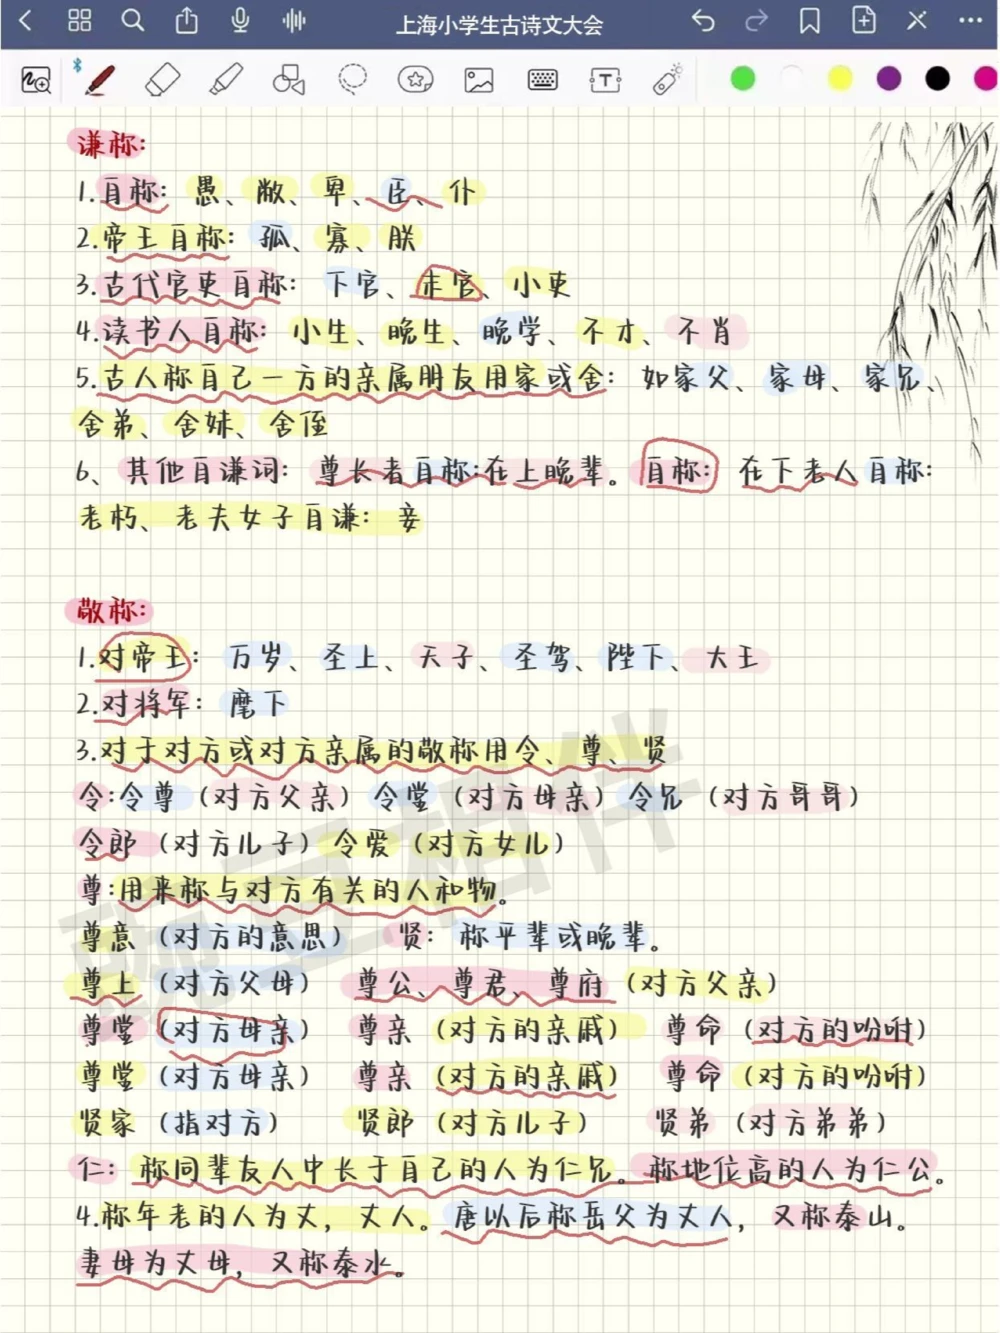 上海小学生古诗文大会
谦称:
1.自称: 愚、敝、卑、臣、仆
2.帝王自称: 孤、寡、朕
3.古代官吏自称: 下官、末官、小吏
4.读书人自称: 小生、晚生、晚学、不才、不肖
5.古人称自己一方的亲属朋友用家或舍: 如家父、家母、家兄、
舍弟、舍妹、舍侄
6、其他自谦词: 尊长者自称:在上晚辈。自称: 在下老人自称:
老朽、老夫女子自谦: 妾
敬称:
1.对帝王: 万岁、圣上、天子、圣驾、陛下、大王
2.对将军: 麾下
3.对于对方或对方亲属的敬称用令、尊、贤
令:令尊 (对方父亲) 令堂 (对方母亲) 令兄 (对方哥哥)
令郎 (对方儿子) 令爱 (对方女儿)
尊:用来称与对方有关的人和物。
尊意 (对方的意思) 贤: 称平辈或晚辈。
尊上 (对方父母) 尊公、尊君、尊府 (对方父亲)
尊堂 (对方母亲) 尊亲 (对方的亲戚) 尊命 (对方的吩咐)
尊堂 (对方母亲) 尊亲 (对方的亲戚) 尊命 (对方的吩咐)
贤家 (指对方) 贤郎 (对方儿子) 贤弟 (对方弟弟)
仁: 称同辈友人中长于自己的人为仁兄。称地位高的人为仁公。
4.称年老的人为丈, 丈人。唐以后称岳父为丈人, 又称泰山。
妻母为丈母, 又称泰水。
聊豆相伴